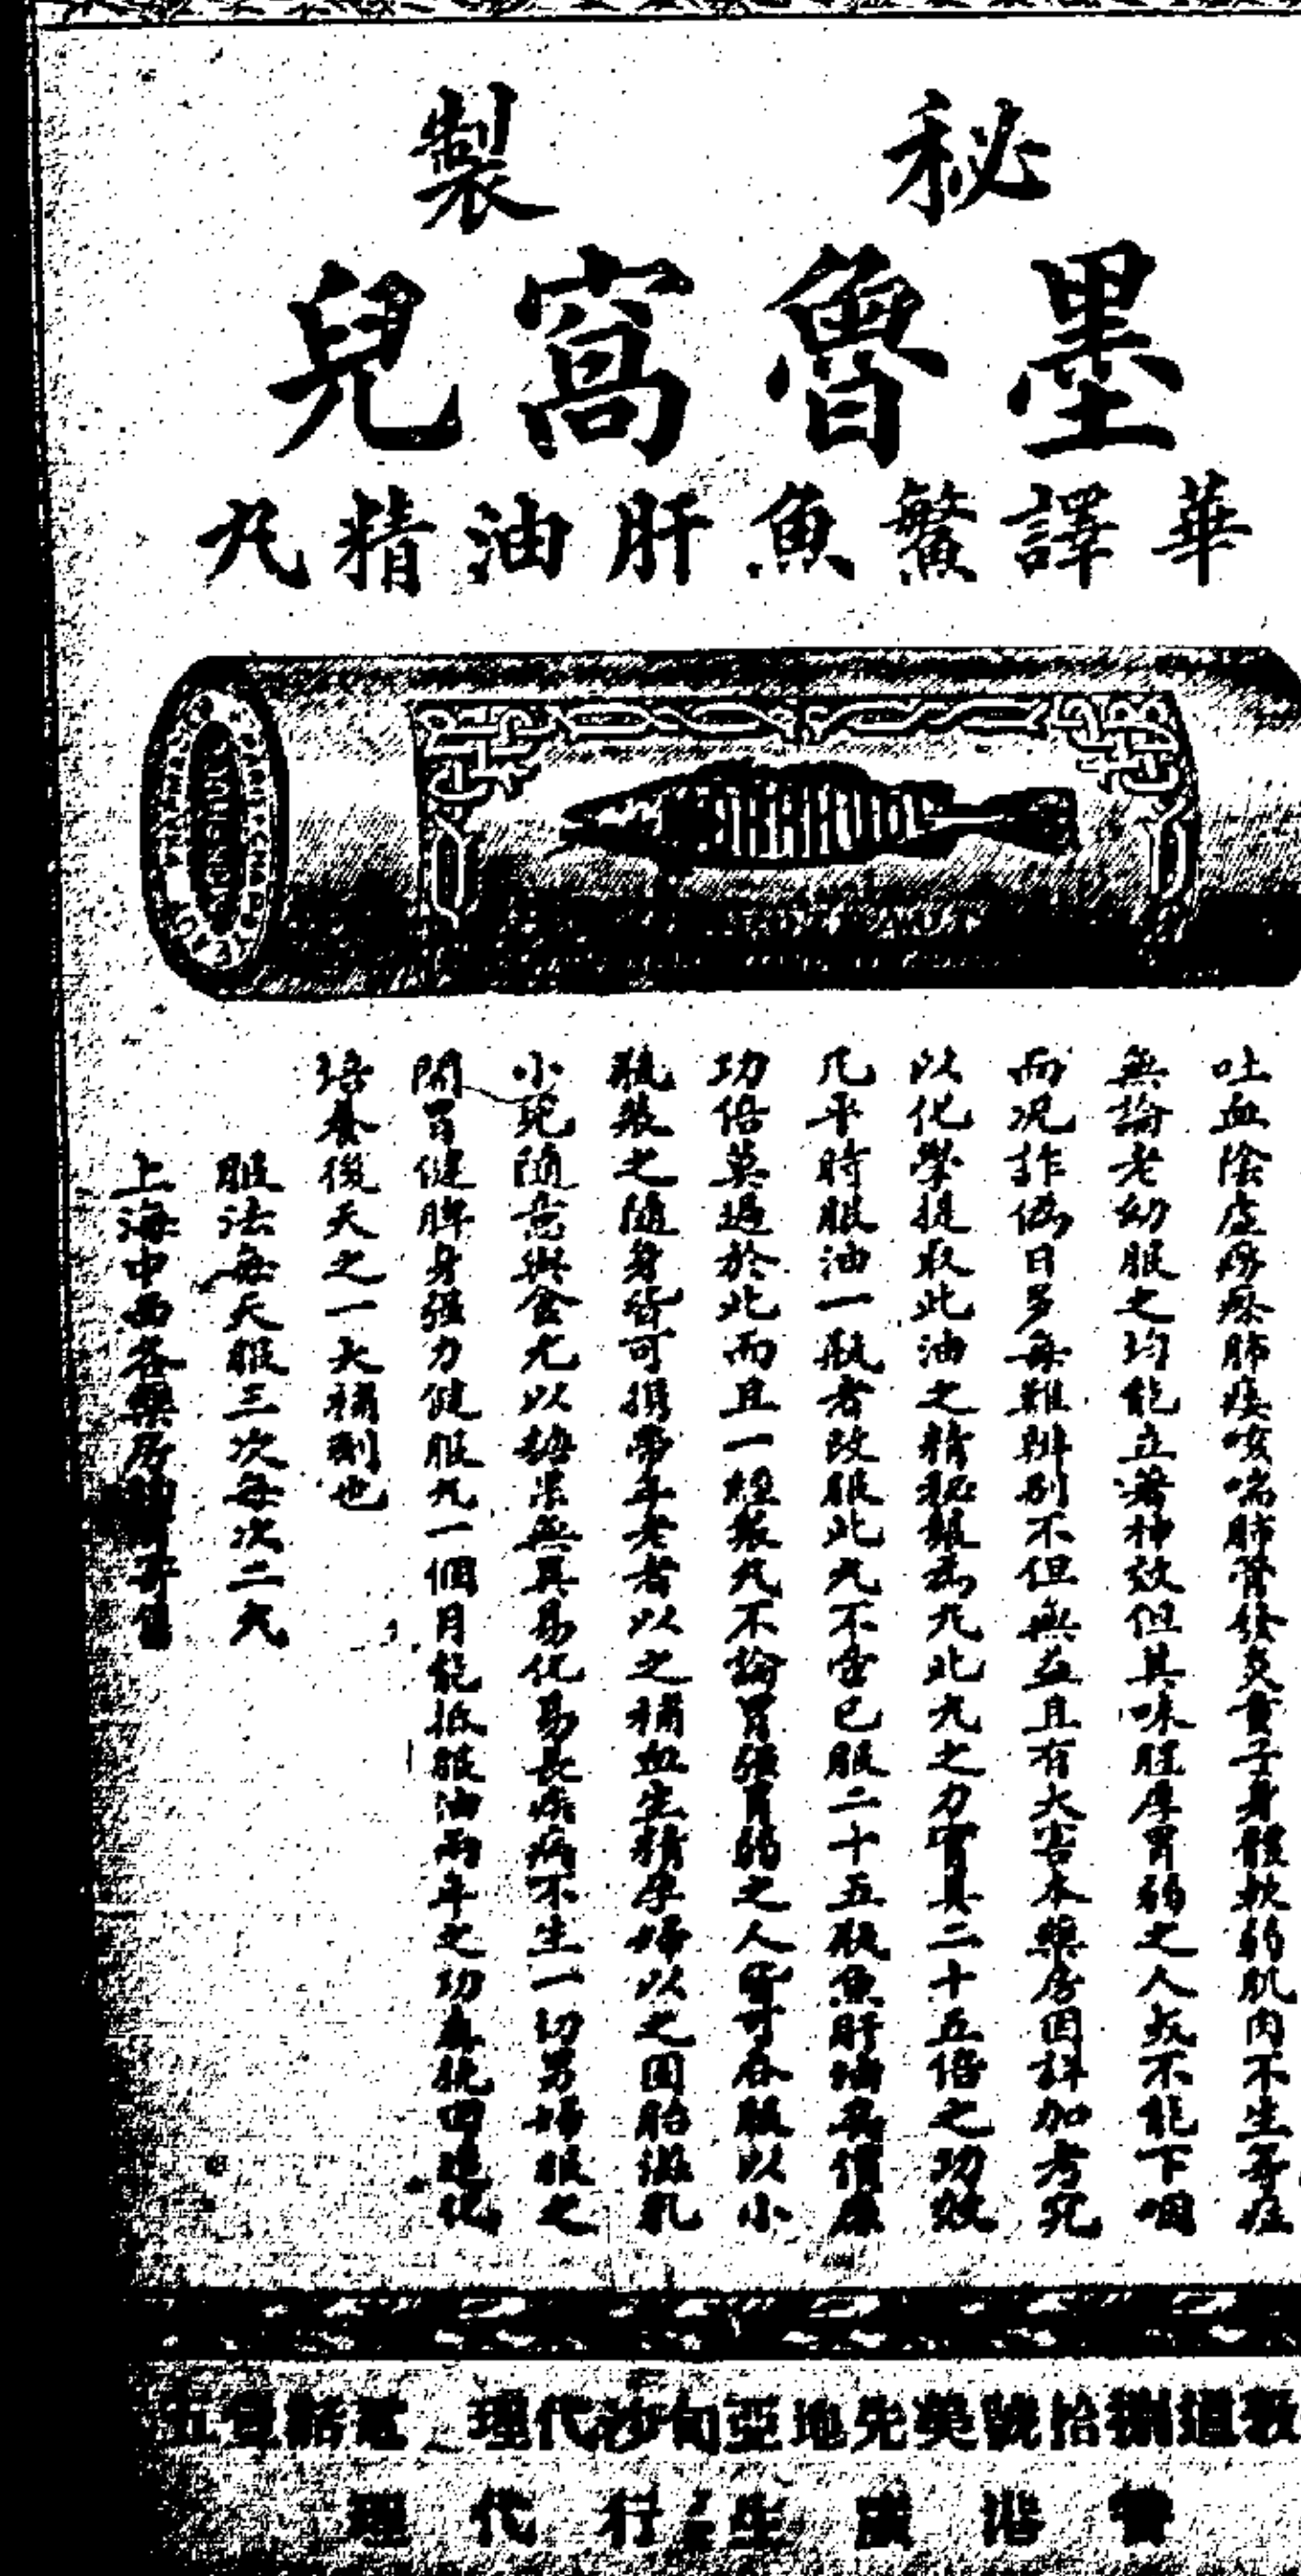 秘製
墨魯窩兒
華譯鰵魚肝油精丸
吐血陰虛癆瘵肺痿咳喘肺管發炎童子身體軟弱肌肉不生等症
無論老幼服之均能立著神效但其味腥厚胃弱之人或不能下咽
而况詐偽日多每難辨别不但無益且有大害本藥房因詳加考究
以化學提取此油之精秘製為丸此丸之力實具二十五倍之功效
凡平時服油一瓶者改服此丸不啻已服二十五瓶魚肝油其價廉
功倍莫過於此而且一經製丸不論胃強胃弱之人皆可吞服以小
瓶裝之隨身皆可攜帶年老者以之補血生精孕婦以之固胎滋乳
小兒隨意與食尤以糖果無異易化易長疾病不生一切男婦服之
開胃健脾身強力健服丸一個月能抵服油兩年之功
培養後天之一大補劑也
服法每天服三次每次二丸
上海中西各藥房均有寄售
教道捌拾號英先地亞甸沙代理 電話
代理